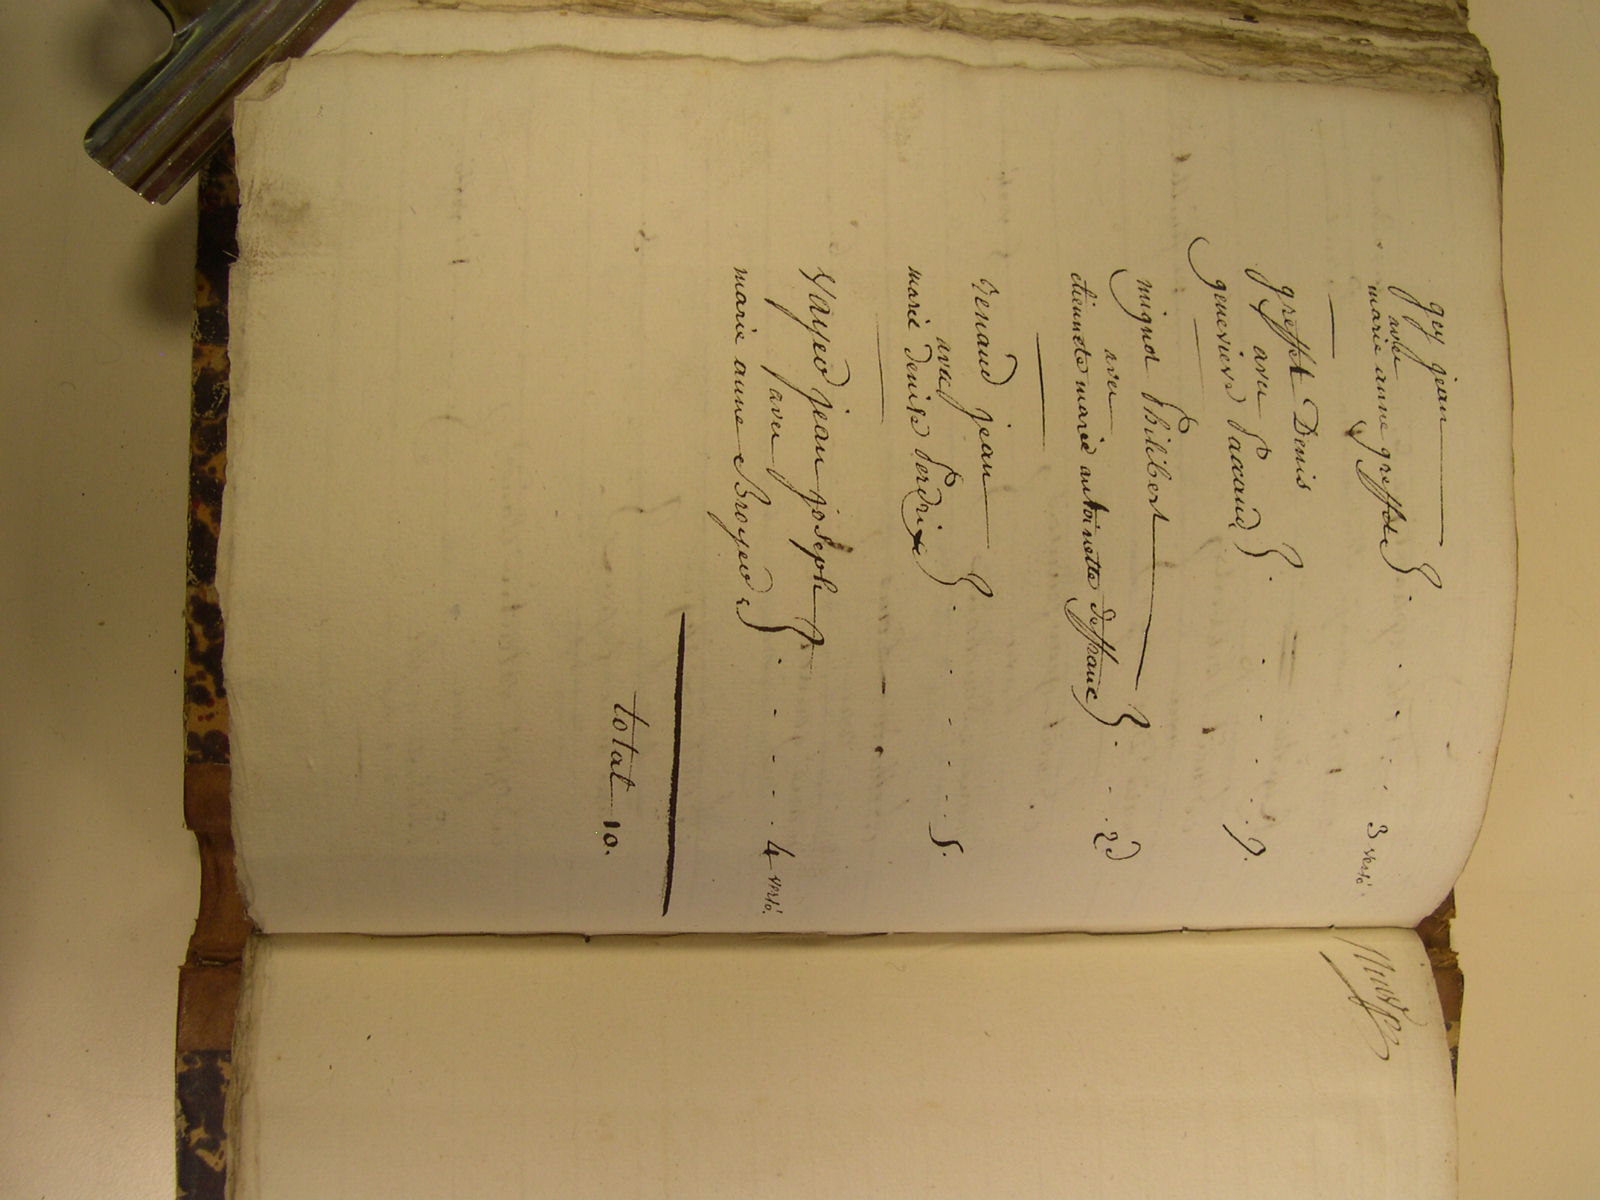 guy jean
avec
marie anne greffet . . . . 3 verso.
greffet Denis
avec
genevieve Paccaud . . . . 9.
mignot Philibert
avec
etiennete marie antoinette deffranc . . . 2d
renaud jean
avec
marie denise Perdrix . . . . . 5.
Vayer jean joseph
avec
marie anne Broyer . . . . 4 verso.
total 10.